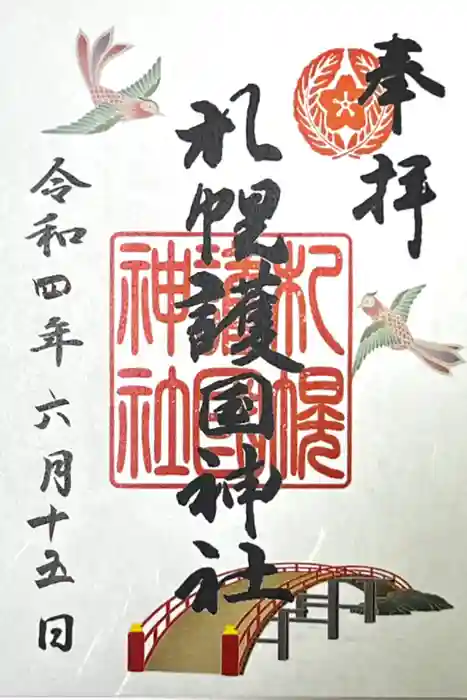 奉拝
札幌護国神社
札幌護国神社
令和四年六月十五日